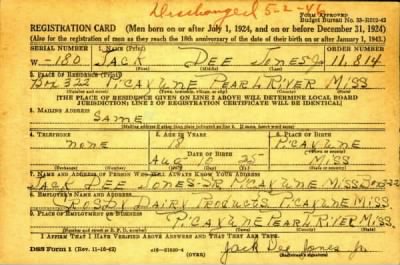 Discharged 5-2-46
FORM APPROVED
Budget Bureau No. 33-R012-42
REGISTRATION CARD (Men born on or after July 1, 1924, and on or before December 31, 1924)
(Also for the registration of men as they reach the 18th anniversary of the date of their birth on or after January 1, 1943.)
SERIAL NUMBER 1. NAME (Print) ORDER NUMBER
W-180 JACK DEE JONES Jr 11,814
(First) (Middle) (Last)
2. PLACE OF RESIDENCE (Print)
Box 322 PICAYUNE PEARL RIVER MISS
[THE PLACE OF RESIDENCE GIVEN ON LINE 2 ABOVE WILL DETERMINE LOCAL BOARD
JURISDICTION; LINE 2 OF REGISTRATION CERTIFICATE WILL BE IDENTICAL]
3. MAILING ADDRESS
SAME
4. TELEPHONE 5. AGE IN YEARS 6. PLACE OF BIRTH
NONE 18 PICAYUNE
DATE OF BIRTH
Aug 18 25 MISS
(Exchange) (Number) (Mo.) (Day) (Yr.) (State or country)
7. NAME AND ADDRESS OF PERSON WHO WILL ALWAYS KNOW YOUR ADDRESS
JACK DEE JONES-SR PICAYUNE MISS Box 322
8. EMPLOYER'S NAME AND ADDRESS
CROSBY DAIRY PRODUCTS PICAYUNE MISS
9. PLACE OF EMPLOYMENT OR BUSINESS
PICAYUNE PEARL RIVER MISS.
(Number and street or R. F. D. number) (Town) (County) (State)
I AFFIRM THAT I HAVE VERIFIED ABOVE ANSWERS AND THAT THEY ARE TRUE.
DSS Form 1 (Rev. 11-16-42) (OVER) Jack Dee Jones Jr
(Registrant's signature)